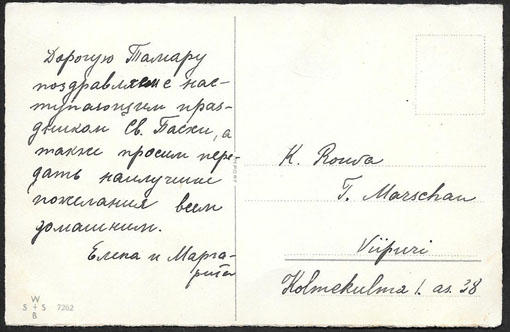 Дорогую Тамару
поздравляем с нас-
тупающим праз-
дником Св. Пасхи, а
также просим пере-
дать наилучшие
пожелания всем
домашним.
Елена и Марга-
рита
K. Rouva
T. Marschan
Viipuri
Kolmekulma 1. as. 38
W
S + S
B
7262